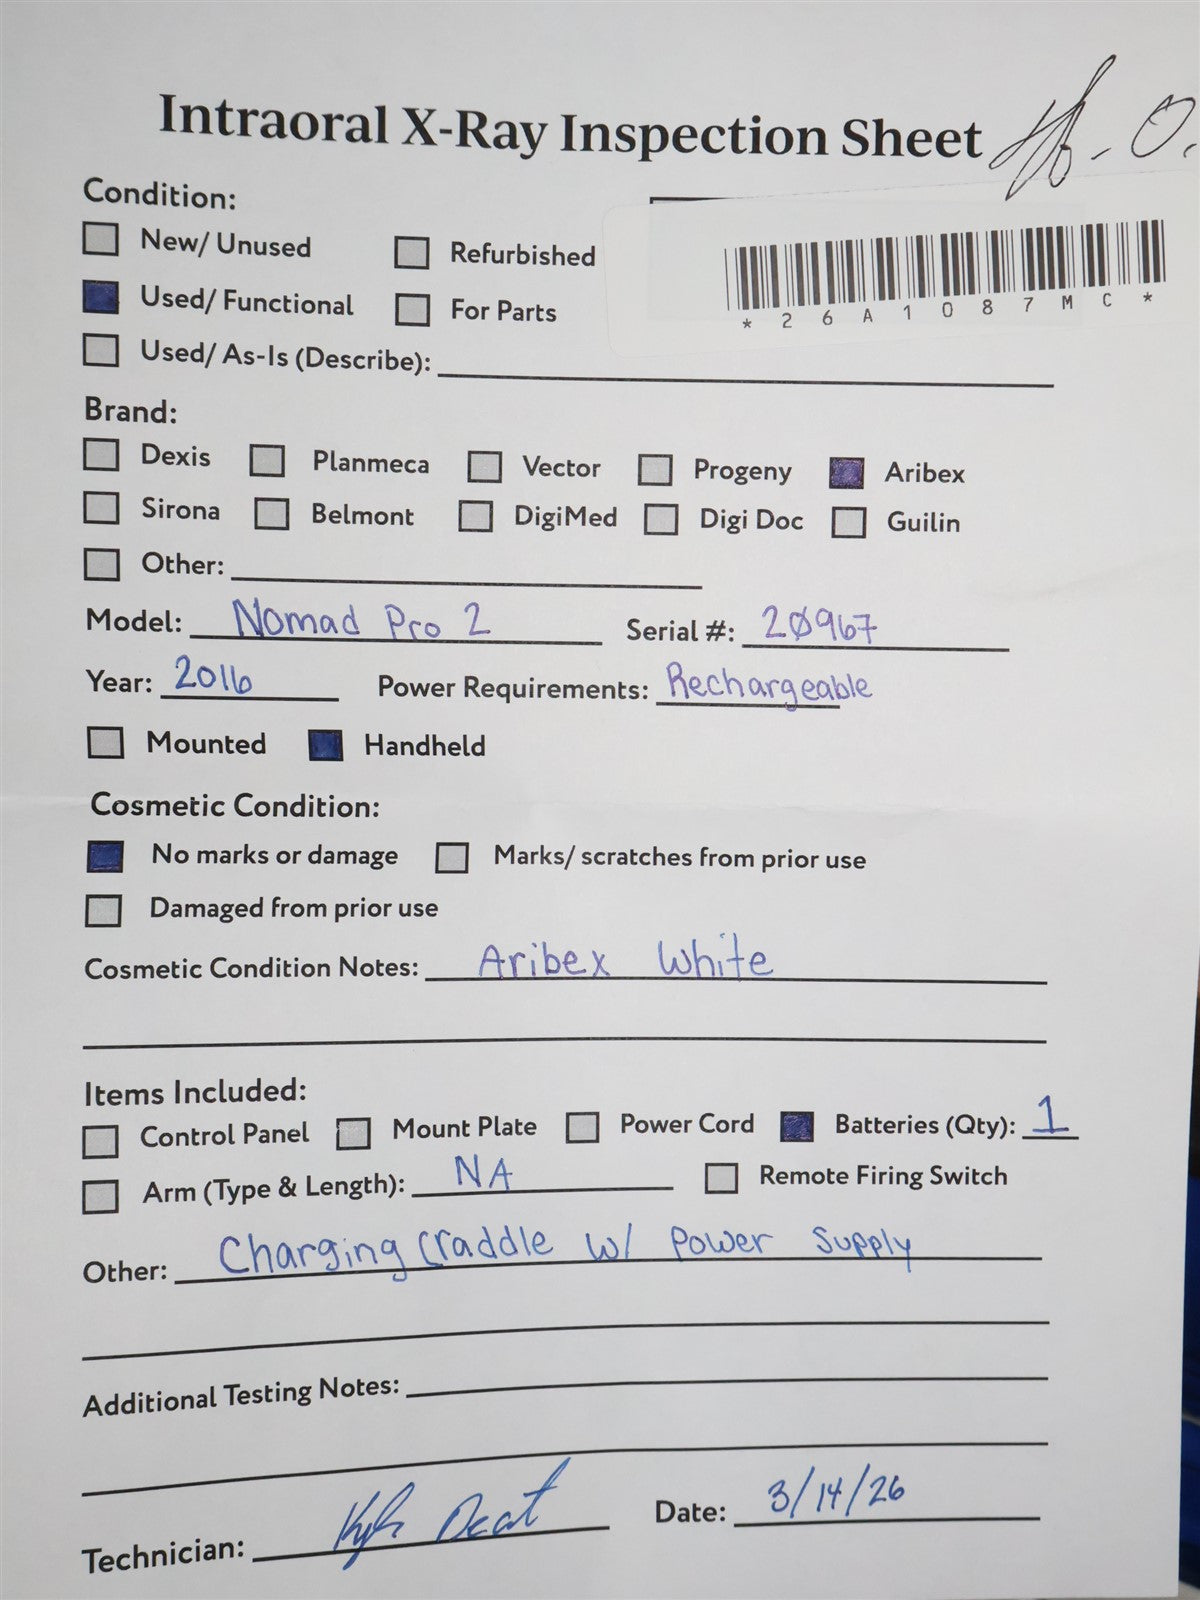 Intraoral X-Ray Inspection Sheet
Condition:
New/ Unused Refurbished
*26A1087MC*
Used/ Functional For Parts
Used/ As-Is (Describe):
Brand:
Dexis Planmeca Vector Progeny Aribex
Sirona Belmont DigiMed Digi Doc Guilin
Other:
Model: Nomad Pro 2 Serial #: 20967
Year: 2016 Power Requirements: Rechargeable
Mounted Handheld
Cosmetic Condition:
No marks or damage Marks/ scratches from prior use
Damaged from prior use
Cosmetic Condition Notes: Aribex White
Items Included:
Control Panel Mount Plate Power Cord Batteries (Qty): 1
Arm (Type & Length): NA Remote Firing Switch
Other: Charging Craddle w/ Power Supply
Additional Testing Notes:
Technician: Date: 3/14/26